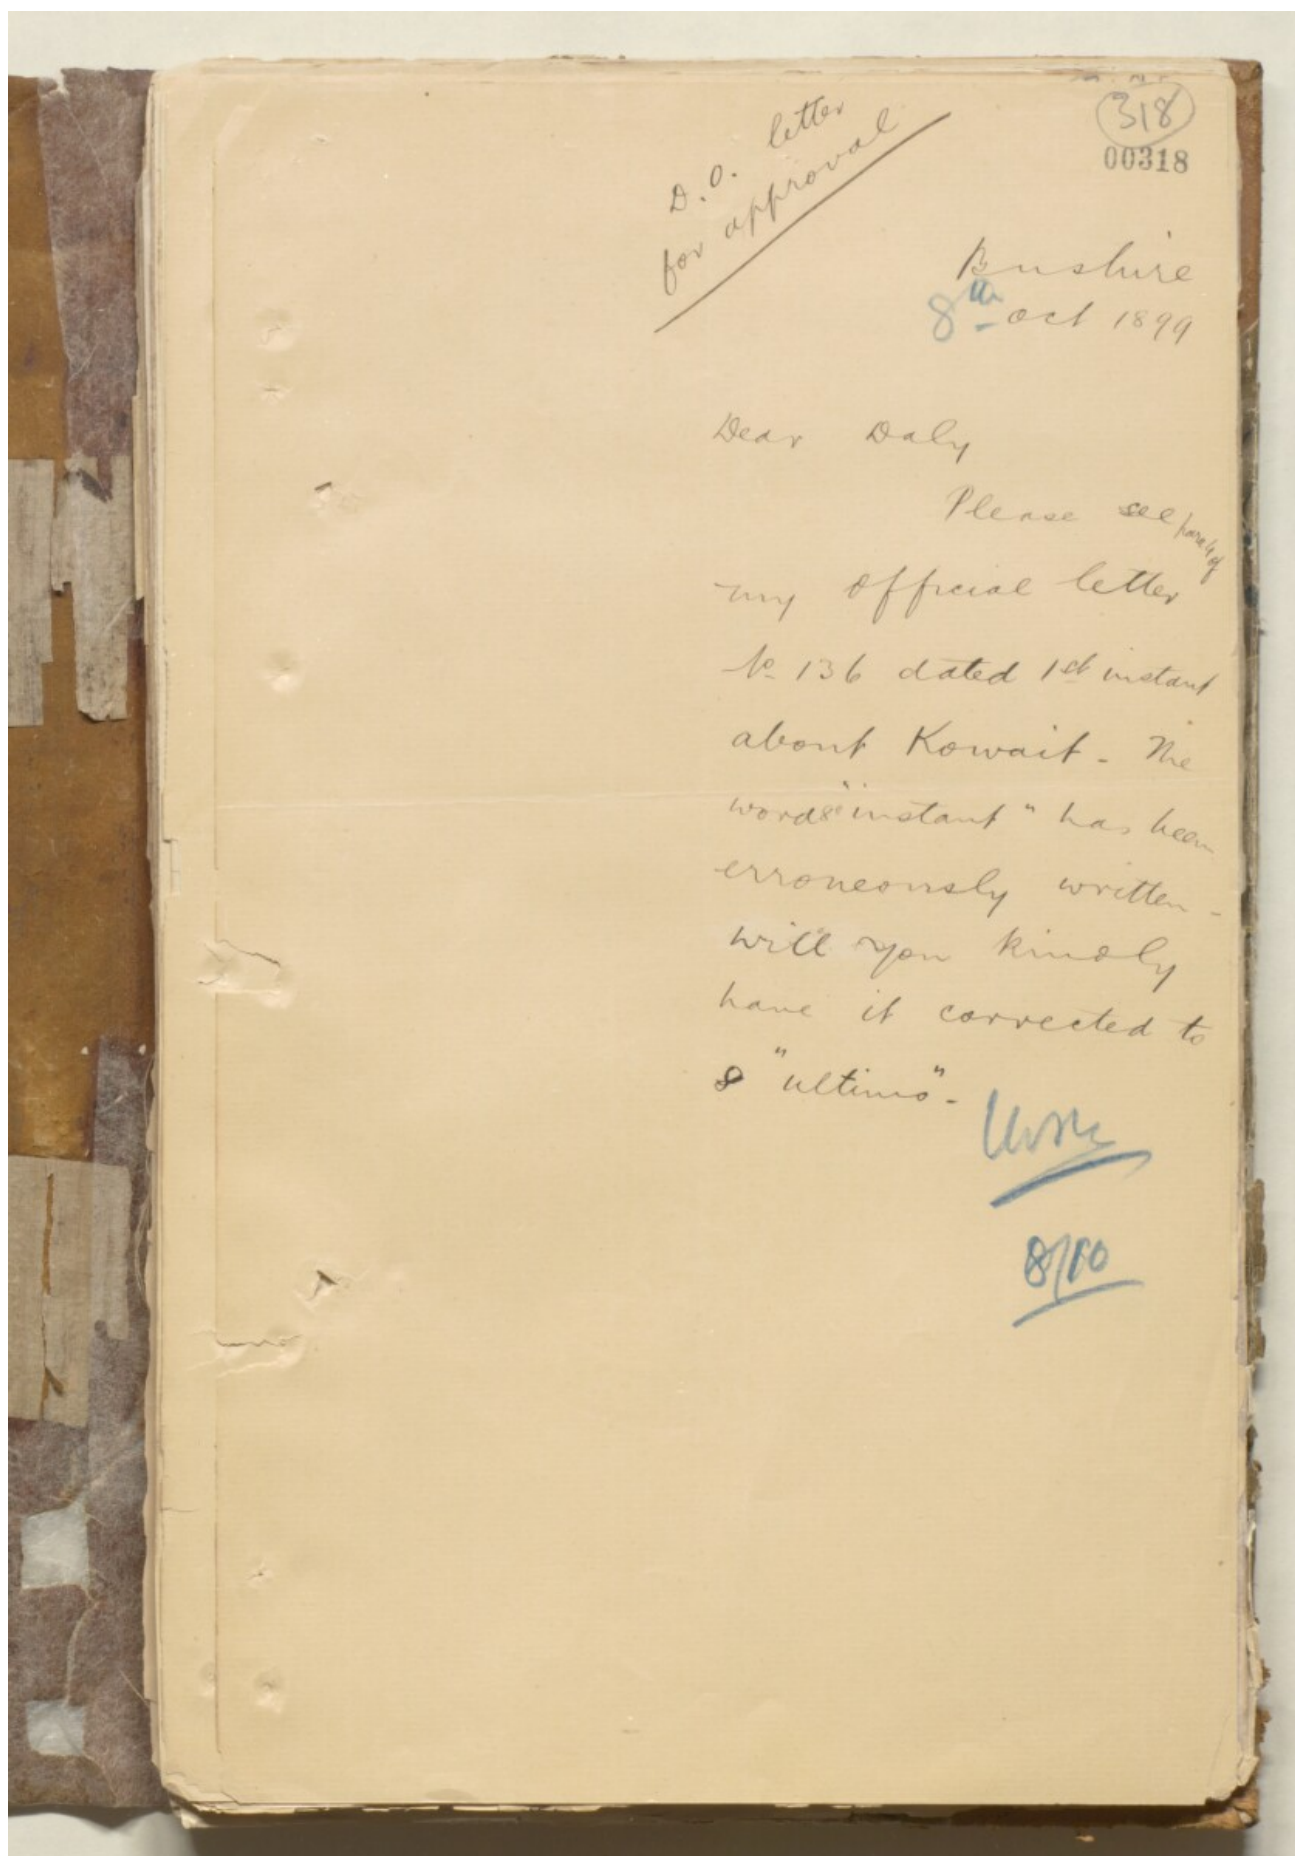 318
00318
D.O. letter
for approval
Bushire
8th Oct 1899
Dear Daly
Please see para 4 of
my official letter
No 136 dated 1st instant
about Kowait - The
word "instant" has been
erroneously written -
will you kindly
have it corrected to
"ultimo" -
8/10